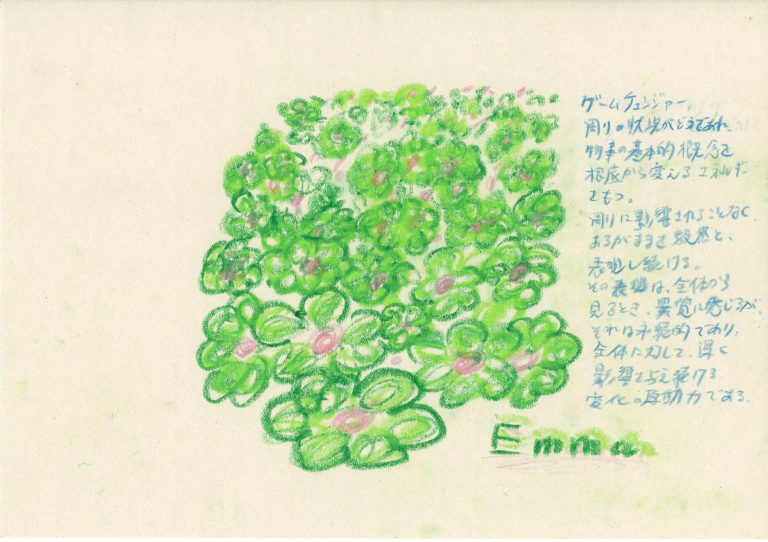 ゲームチェンジャー
周りの状況がどうであれ、
物事の基本的概念を
根底から変えるエネルギー
をもつ。
周りに影響されることなく
あるがままを毅然と、
表現し続ける。
その表現は、全体から
見るとき、異質に感じるが、
それは永続的であり、
全体に対して、深く
影響を与え続ける
変化の原動力である。
Emma